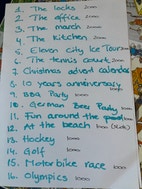 1. The locks 2000
2. The office 2000
3. The march 2000
4. The kitchen 2000
5. Eleven City Ice Tour 2000
6. The tennis court 2000
7. Christmas advent calendar
8. 10 years anniversary 1000
9. BBQ Party 1000
10. German Beer Party 1000
11. Fun around the 1000
12. At the beach 1000
13. Hockey 1000
14. Golf 1000
15. Motorbike race 1000
16. Olympics 1000